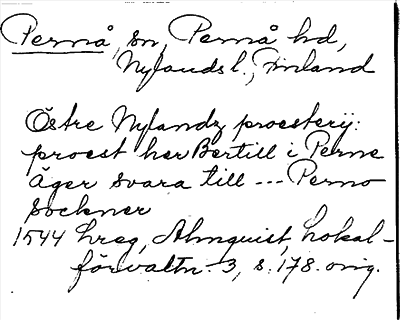 Pernå, sn, Pernå hd,
Nylands l., Finland
Östre Nylandz proesterij:
proest her Bertill i Perne
äger svara till --- Perno
sockner
1544 hreg, Almquist, Lokal-
förvaltn. 3, s. 178. orig.